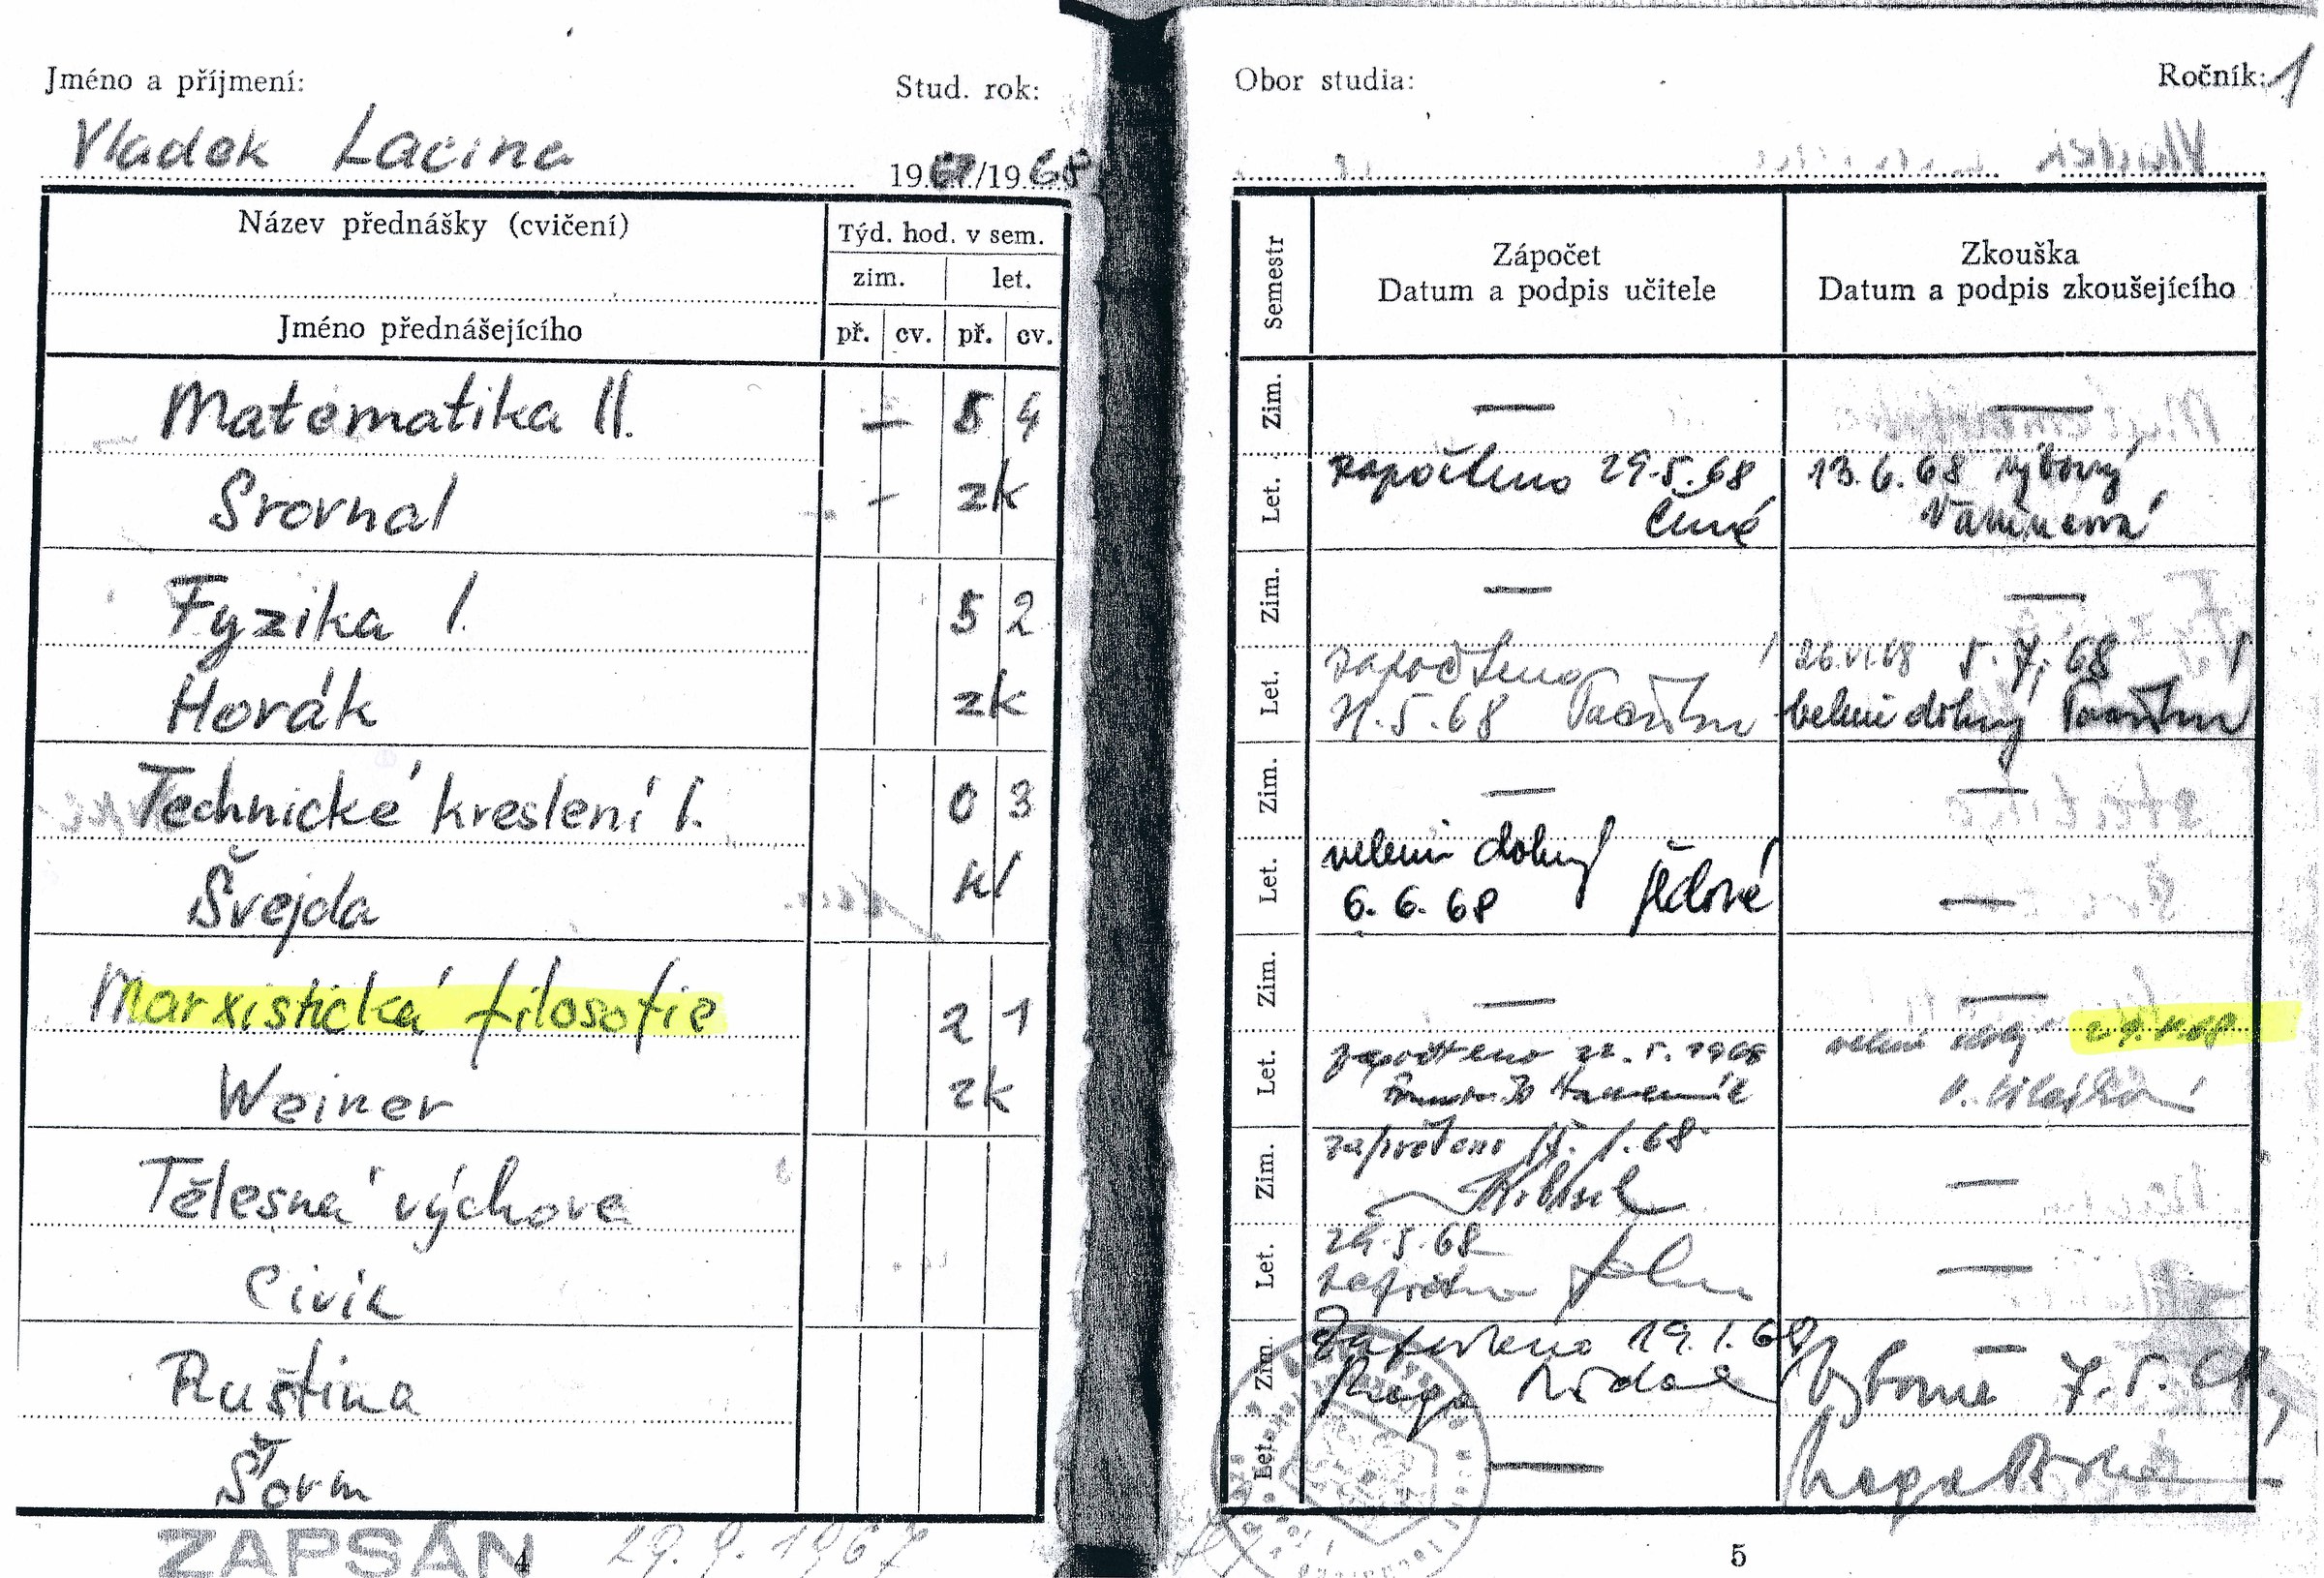 Jméno a příjmení:
Stud. rok:
Vladek Lacina
1967/1968
Název přednášky (cvičení)
Týd. hod. v sem.
zim. let.
Jméno přednášejícího
př. cv. př. cv.
Matematika II. — 5 4
Srovnal - zk
Fyzika I. 5 2
Horák zk
Technické kreslení I. 0 3
Švejda kl
Marxistická filosofie 2 1
Weiner zk
Tělesná výchova
Civín
Ruština
Šorm
ZAPSÁN 29. 9. 1967
4
Obor studia:
Ročník: 1
Semestr
Zápočet
Datum a podpis učitele
Zkouška
Datum a podpis zkoušejícího
Zim. — —
Let. započteno 29.5.68 13.6.68 výborný
Zim. — —
Let. započteno 26.VI.68 5.7.68
31.5.68 velmi dobrý
Zim. — —
Let. velmi dobrý
6.6.68 —
Zim. — —
Let. započteno 22.5.1968 velmi dobrý
Zim. započteno 15.1.68
—
Let. 29.5.68
započteno —
Zim. Započteno 19.1.68 —
Výborně 7.5.68
Let. —
5